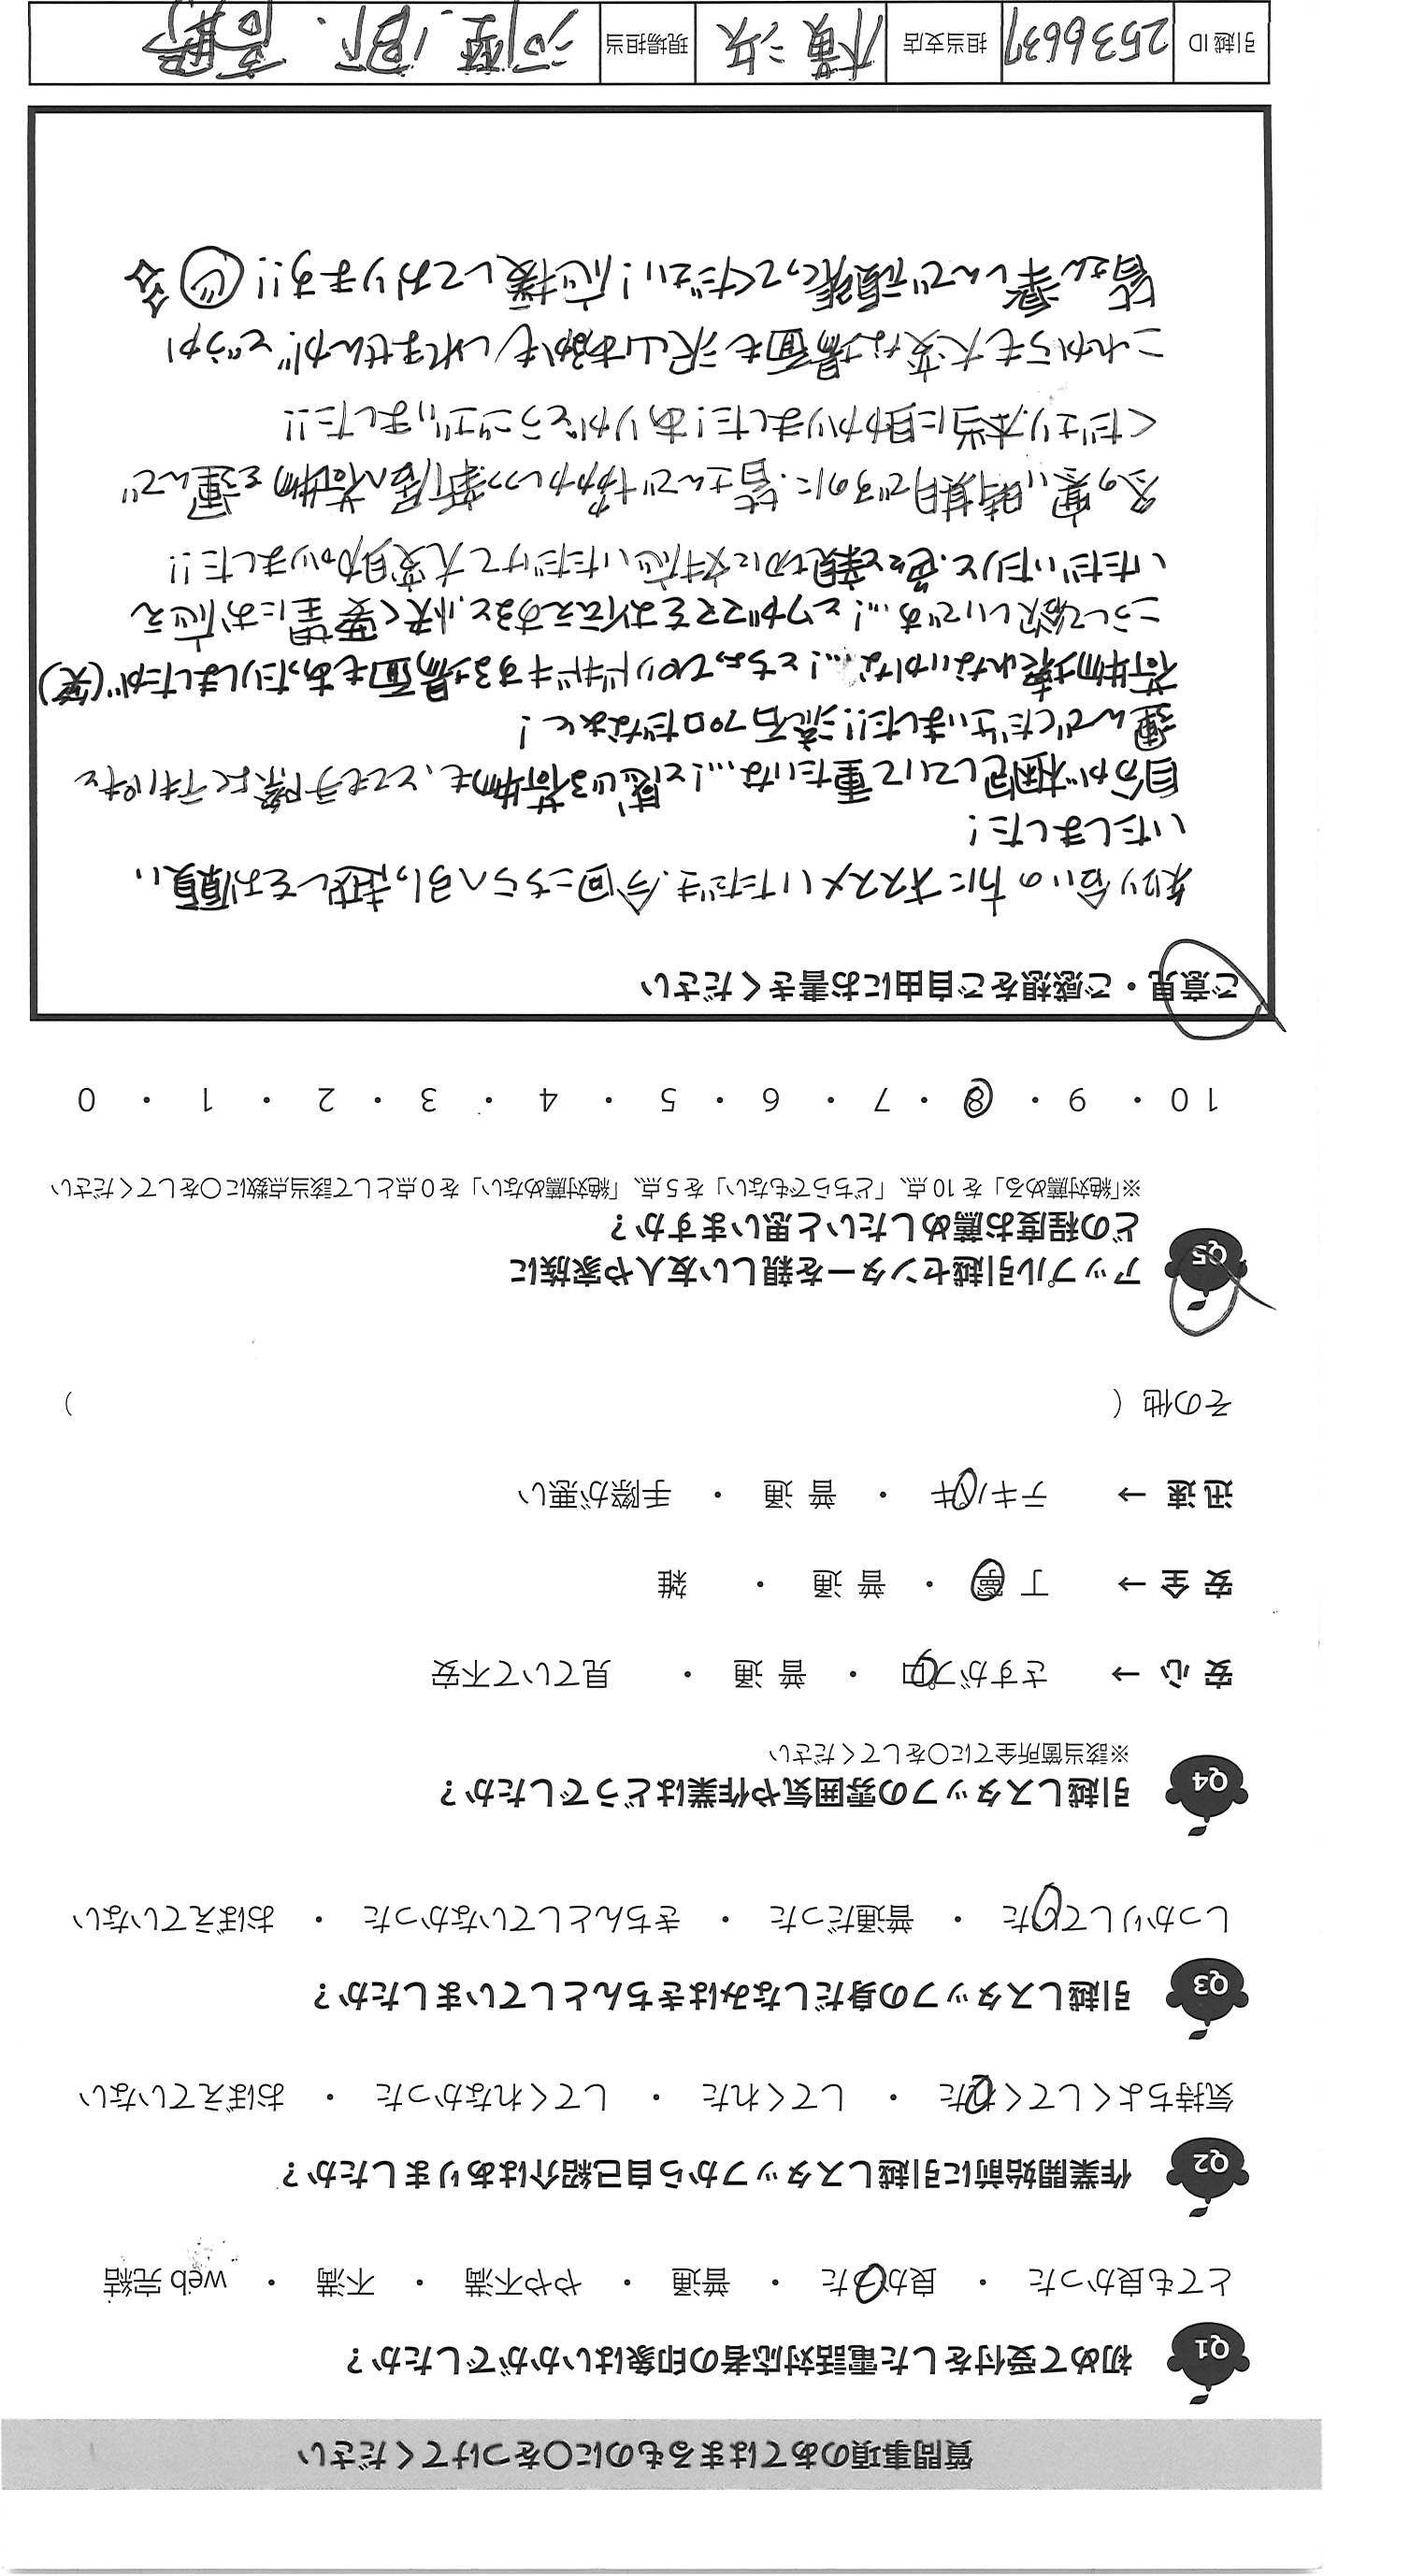 質問事項のあてはまるものに○をつけてください
Q1 初めて受付をした電話対応者の印象はいかがでしたか？
とても良かった ・ 良かった ・ 普通 ・ やや不満 ・ 不満 ・ web 完結
Q2 作業開始前に引越しスタッフから自己紹介はありましたか？
気持ちよくしてくれた ・ してくれた ・ してくれなかった ・ おぼえていない
Q3 引越しスタッフの身だしなみはきちんとしていましたか？
しっかりしてした ・ 普通だった ・ きちんとしていなかった ・ おぼえていない
Q4 引越しスタッフの雰囲気や作業はどうでしたか？
※該当箇所全てに○をしてください
安 心 → さすがプロ ・ 普 通 ・ 見ていて不安
安 全 → 丁 寧 ・ 普 通 ・ 雑
迅 速 → テキパキ ・ 普 通 ・ 手際が悪い
その他（ ）
Q5 アップル引越センターを親しい友人や家族に
どの程度お薦めしたいと思いますか？
※「絶対薦める」を 10 点、「どちらでもない」を 5 点、「絶対薦めない」を 0 点として該当点数に○をしてください
10 ・ 9 ・ 8 ・ 7 ・ 6 ・ 5 ・ 4 ・ 3 ・ 2 ・ 1 ・ 0
ご意見・ご感想をご自由にお書きください
知り合いの方にオススメいただき、今回こちらへ引っ越しをお願い
いたしました！
自分が梱包していて重たいな…！と感じる荷物も、とても手際よくテキパキと
運んでくださいました!!流石プロだなぁと！
荷物壊れないかな…！とちょっぴりドギドギする場面もあったりしましたが(笑)
こうして欲しいです…！とワガママをお伝えすると、快く要望にお応え
いただいたりと、色々と親切に対応いただけて大変助かりました!!
冬の寒い時期ですのに、皆さんで協力しつつ新居へ荷物を運んで
くださり、本当に助かりました！ありがとうございました!!
これからも大変な場面も沢山あるかもしれませんが、どうか
皆さん楽しんで頑張ってください！応援しております!!
引越 ID 2536637 担当支店 横浜 現場担当